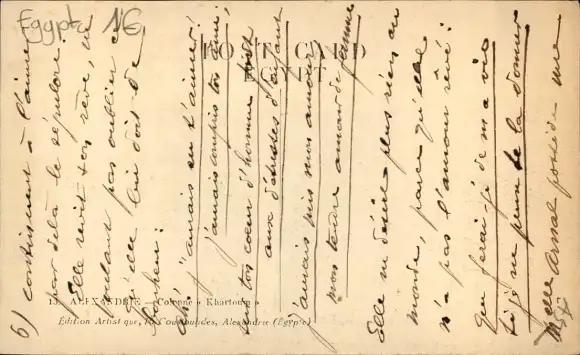 Egypte 1/6
POST CARD
EGYPT
6) continuant à l'aimer
par delà le sépulcre.
Elle revit son rêve, ne
voulant pas oublier ce
qu'elle lui doit de
bonheur.
Ah! j'aurais su t'aimer!
j'aurais compris ton âme,
ton coeur d'homme fort
aux détresses d'enfant
j'aurais pris mon amour
mon tendre amour de femme
Elle ne désire plus rien au
monde, parce qu'elle
n'a pas l'amour rêvé:
que ferai-je de ma vie
si je ne peux te la donner
Melle Arnal possède une
13. ALEXANDRIE — Colonne « Khartoum »
Édition Artistique, Alexandrie (Égypte)